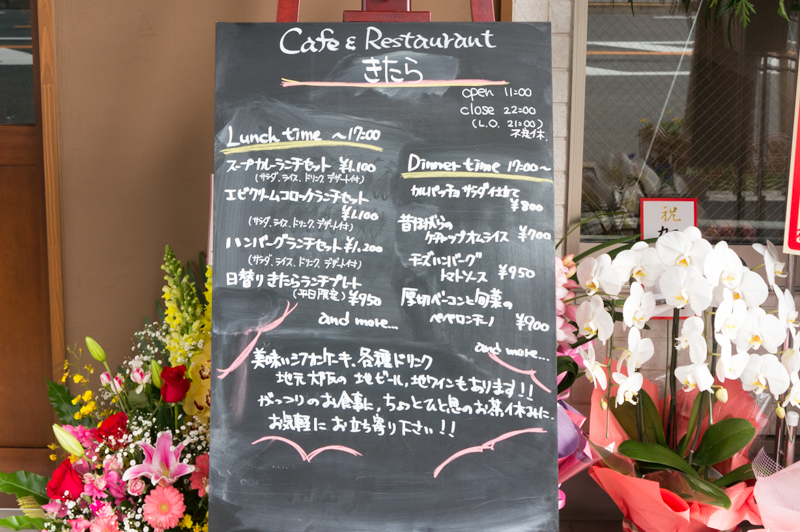 Cafe & Restaurant
きたら
open 11:00
close 22:00
(L.O. 21:00)
不定休.
Lunch time 〜17:00
スープカレーランチセット ¥1,100
(サラダ、ライス、ドリンク、デザート付)
エビクリームコロッケランチセット
¥1,100
(サラダ、ライス、ドリンク、デザート付)
ハンバーグランチセット ¥1,200
(サラダ、ライス、ドリンク、デザート付)
日替りきたらランチプレート
(平日限定) ¥950
and more...
Dinner time 17:00〜
カルパッチョ サラダ仕立て
¥800
昔ながらの
ケチャップオムライス ¥700
チーズハンバーグ
トマトソース ¥950
厚切ベーコンと旬菜の
ペペロンチーノ ¥900
and more...
美味しいシフォンケーキ、各種ドリンク
地元大阪の地ビール、地ワインもあります!!
がっつりのお食事に、ちょっとひと息のお茶休みに、
お気軽にお立ち寄り下さい!!
祝